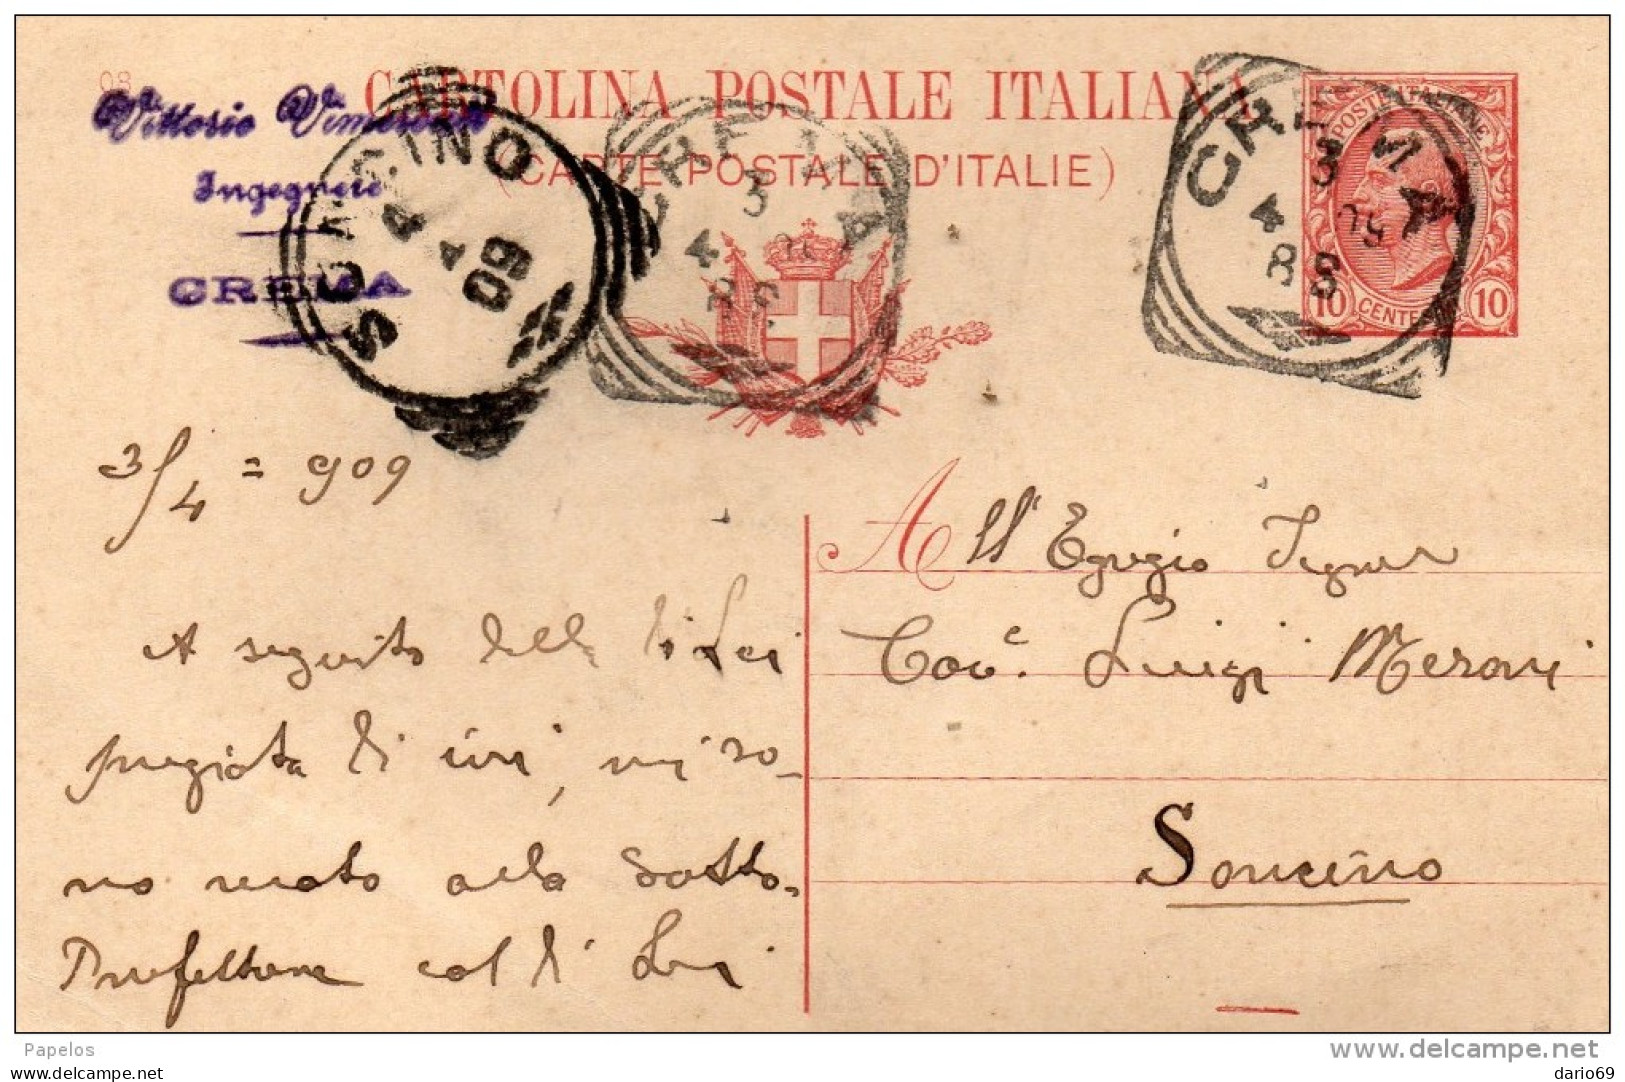 08
CARTOLINA POSTALE ITALIANA
(CARTE POSTALE D'ITALIE)
Vittorio
Ingegnere
CREMA
SONCINO
4 4 09
CREMA
3
4
8 S
CREMA
3
4 09
8 S
POSTE ITALIANE
10 CENTESIMI 10
3/4 = 909
A seguito della di Lei
pregiata di ieri, mi so-
no recato alla Sotto-
Prefettura col di Lei
All' Egregio Signor
Cav.e Luigi Meroni
Soncino
Papelos
www.delcampe.net
dario69